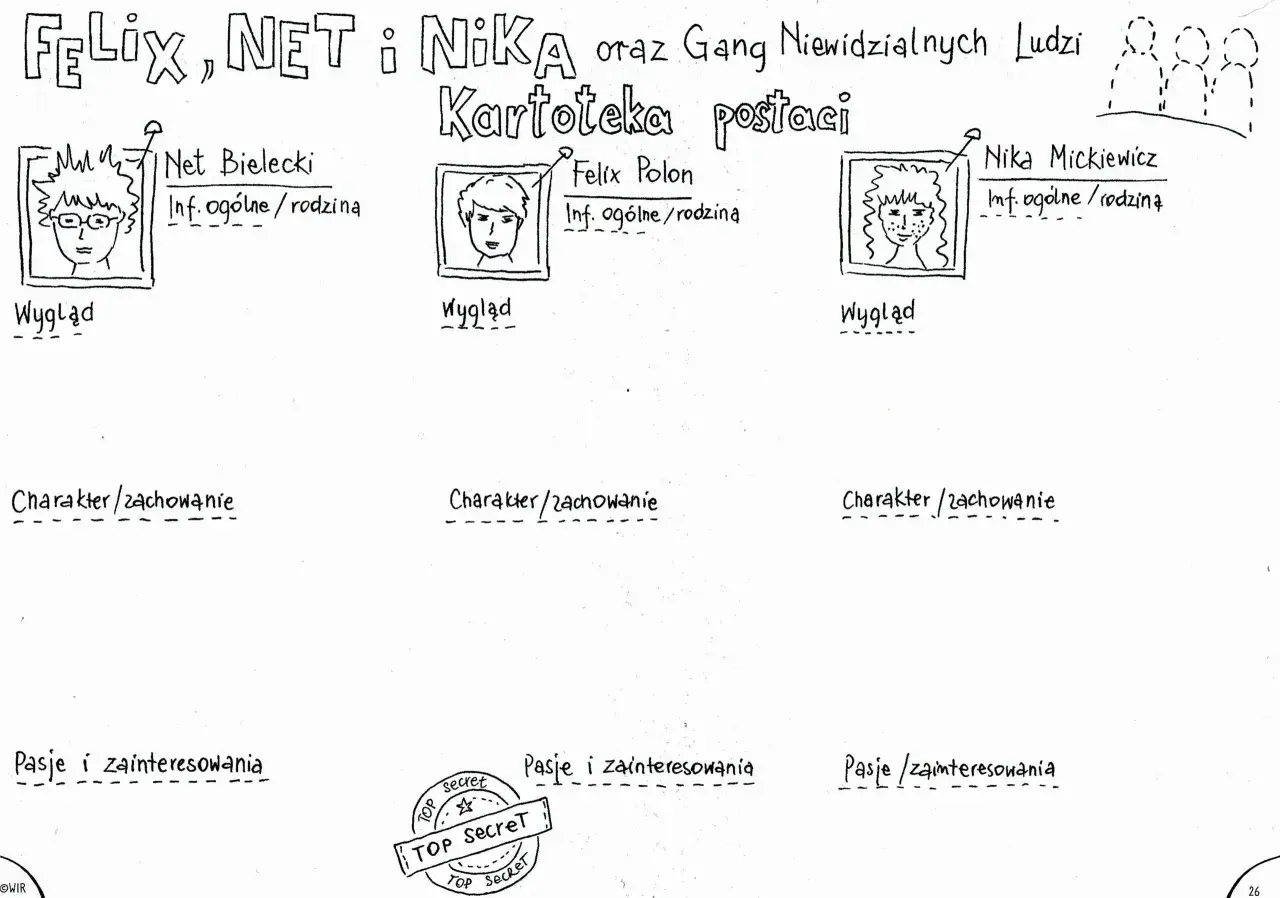 FELIX, NET i NIKA oraz Gang Niewidzialnych Ludzi
Kartoteka postaci
Net Bielecki
Inf. ogólne / rodzina
Wygląd
Charakter/zachowanie
Pasje i zainteresowania
Felix Polon
Inf. ogólne/rodzina
Wygląd
Charakter/zachowanie
Pasje i zainteresowania
Nika Mickiewicz
Inf. ogólne /rodzina
Wygląd
Charakter/zachowanie
Pasje /zainteresowania
TOP secret
TOP SecreT
TOP SecreT
©WIR
26